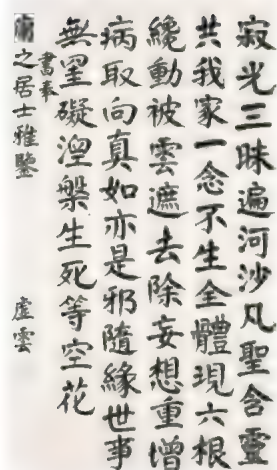 寂光三昧遍河沙凡聖含靈
共我家一念不生全體現六根
纔動被雲遮去除妄想重增
病取向真如亦是邪隨緣世事
無罣礙涅槃生死等空花
書奉
之居士雅鑒
虛雲